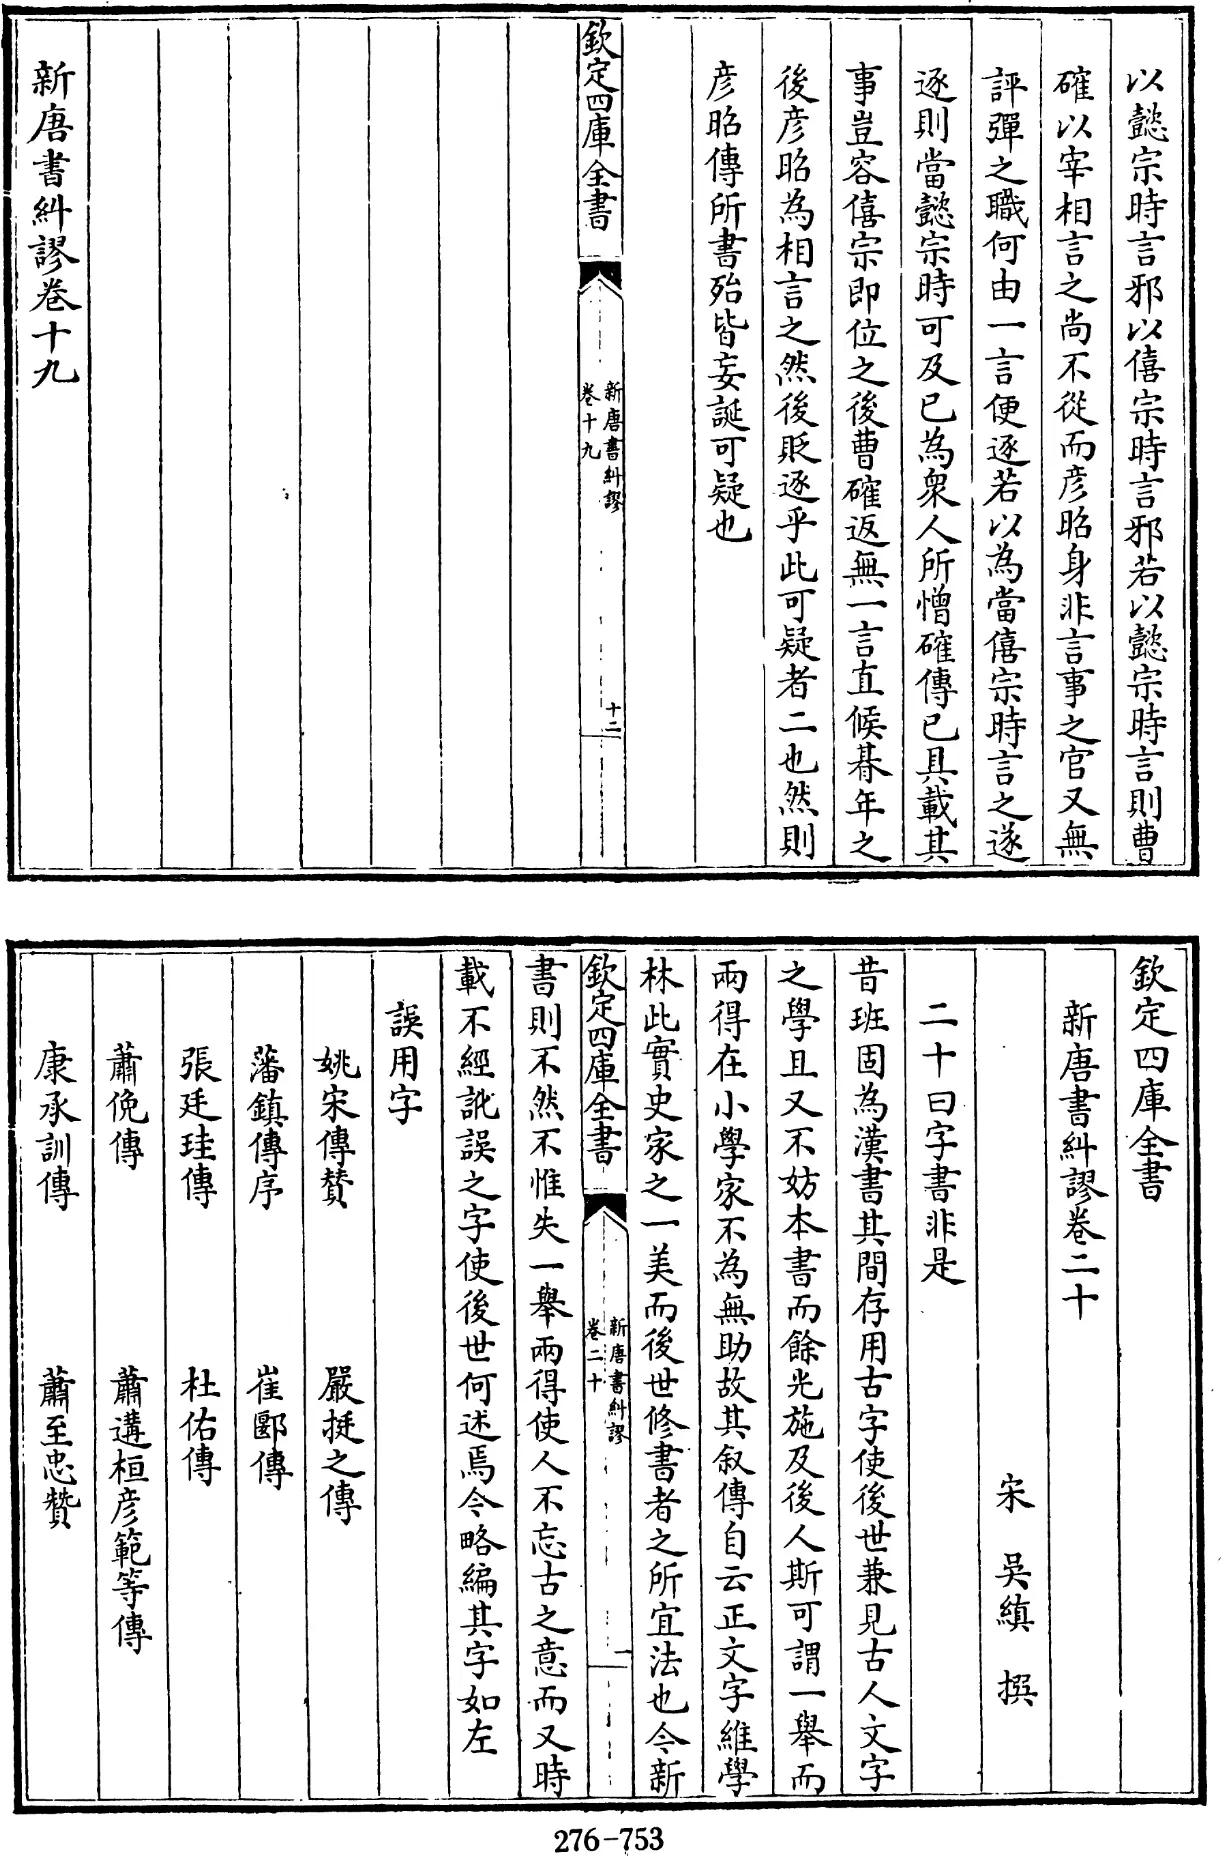 以懿宗時言邪以僖宗時言邪若以懿宗時言則曹
確以宰相言之尚不從而彦昭身非言事之官又無
評彈之職何由一言便逐若以為當僖宗時言之遂
逐則當懿宗時可及已為衆人所憎確傳已具載其
事豈容僖宗即位之後曹確返無一言直候朞年之
後彦昭為相言之然後貶逐乎此可疑者二也然則
彦昭傳所書殆皆妄誕可疑也
欽定四庫全書
新唐書糾謬
卷十九
十二
新唐書糾謬卷十九
欽定四庫全書
新唐書糾謬卷二十
宋 吳縝 撰
二十曰字書非是
昔班固為漢書其間存用古字使後世兼見古人文字
之學且又不妨本書而餘光施及後人斯可謂一舉而
兩得在小學家不為無助故其叙傳自云正文字維學
林此實史家之一美而後世修書者之所宜法也今新
欽定四庫全書
新唐書糾謬
卷二十
一
書則不然不惟失一舉兩得使人不忘古之意而又時
載不經訛誤之字使後世何述焉今略編其字如左
誤用字
姚宋傳贊 嚴挺之傳
藩鎮傳序 崔郾傳
張廷珪傳 杜佑傳
蕭俛傳 蕭遘桓彦範等傳
康承訓傳 蕭至忠贊
276-753